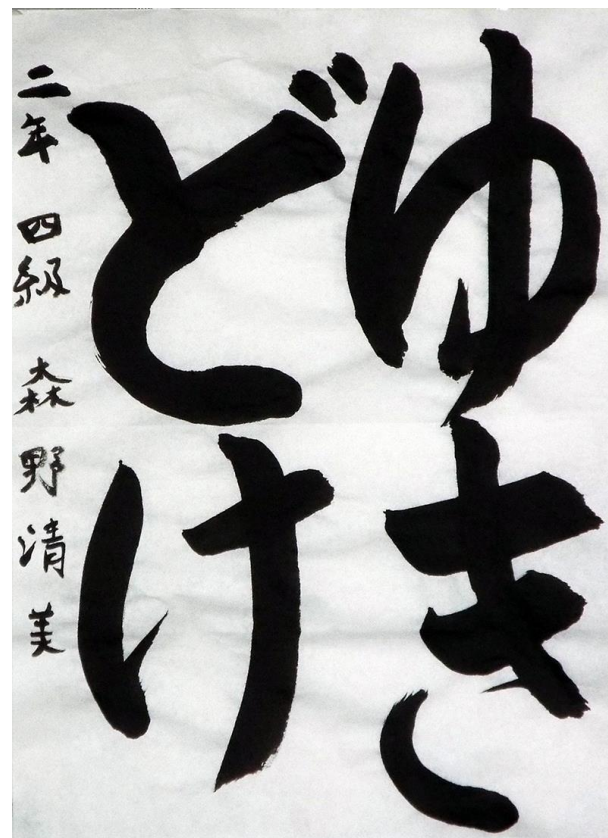 ゆき
どけ
二年 四級 森野清美